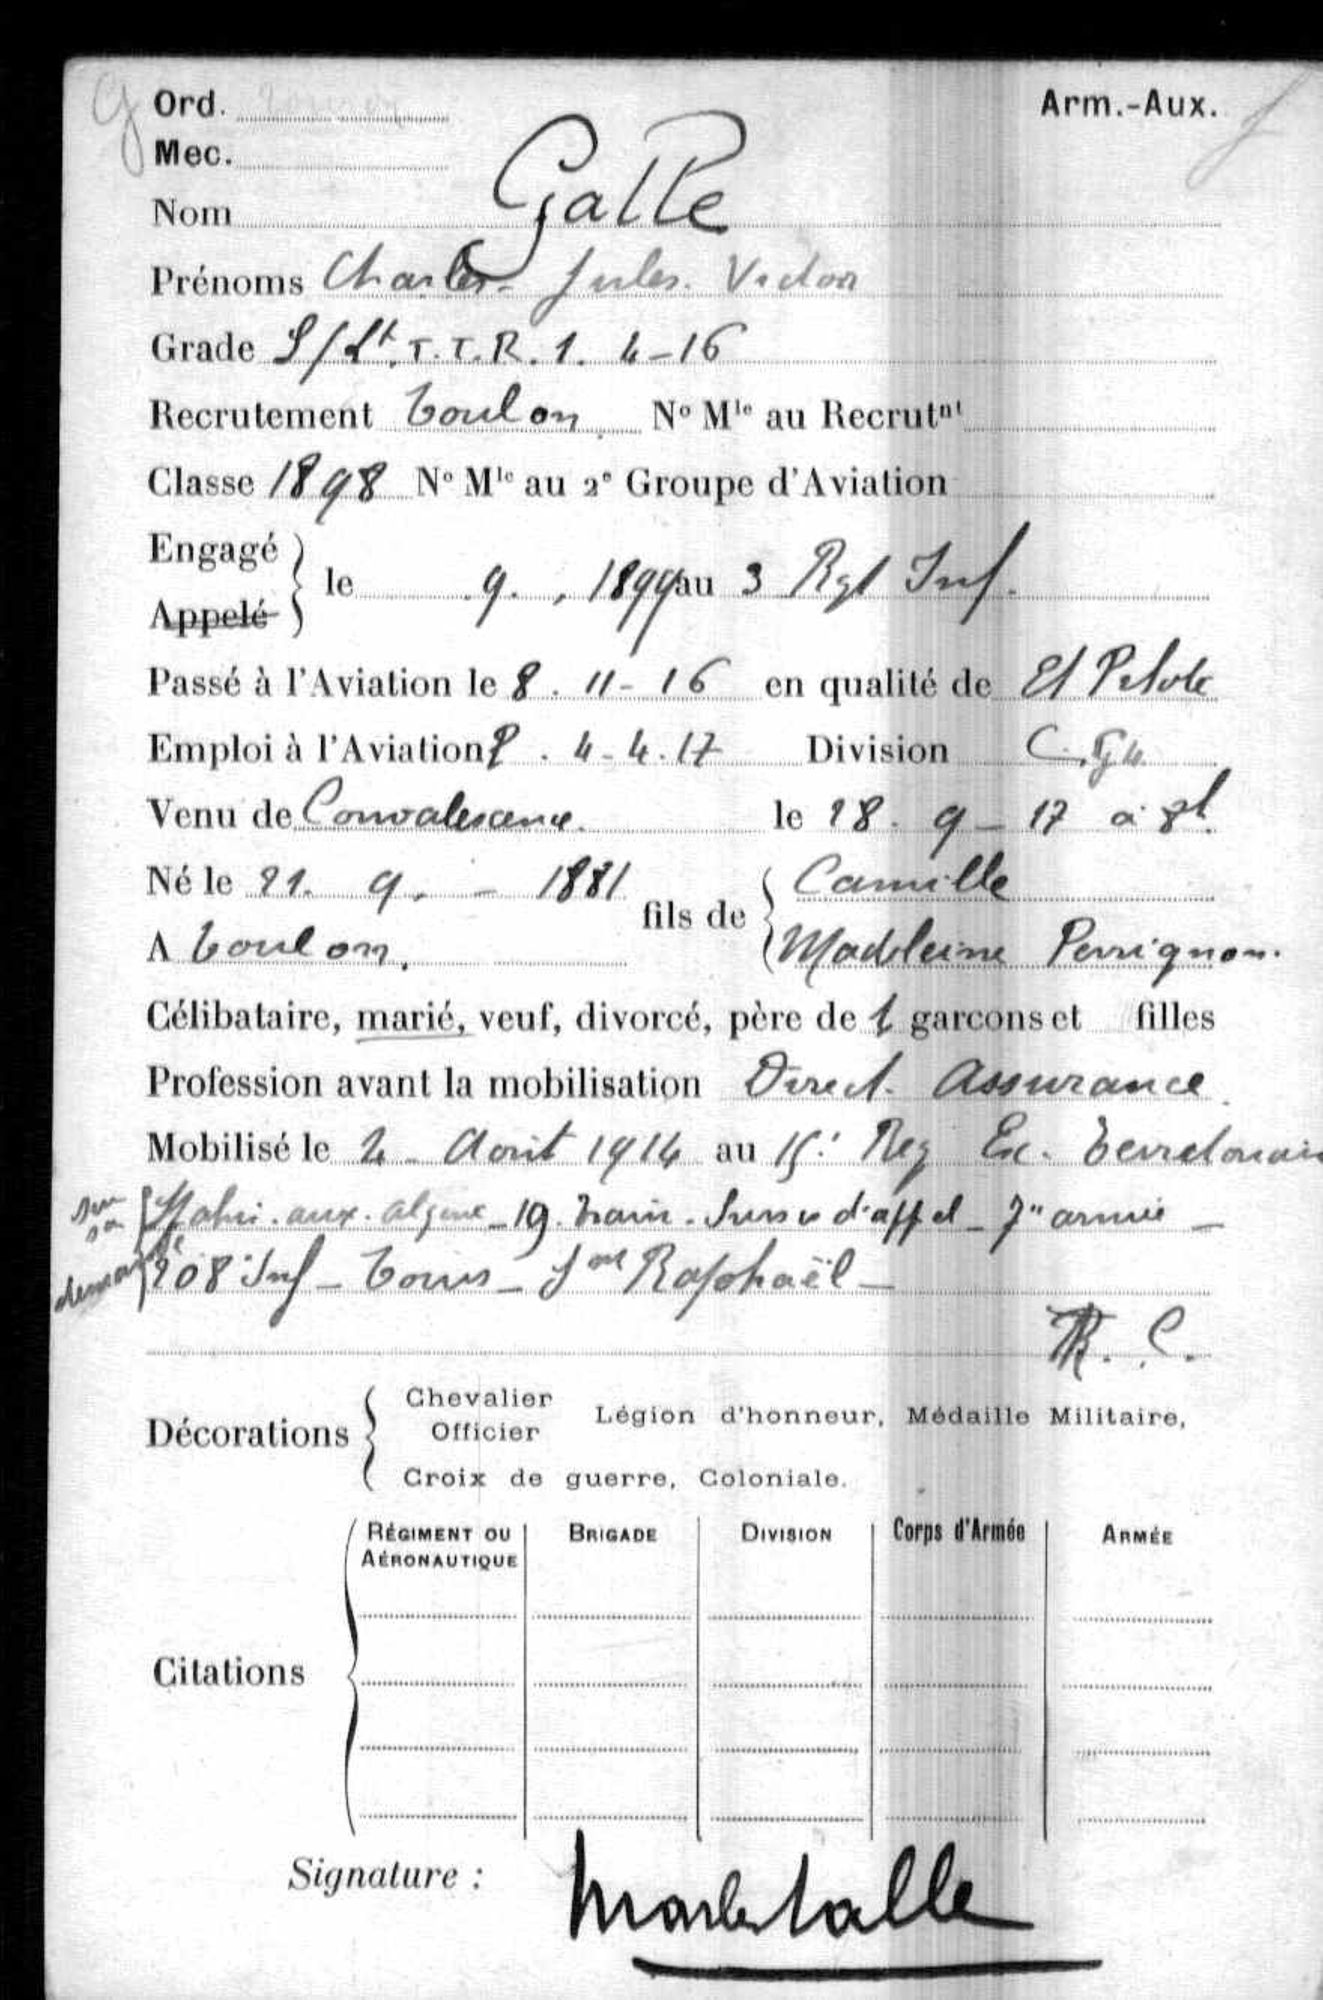 Ord. Arm.-Aux.
Mec.
Nom Galle
Prénoms Charles - Jules. Victor
Grade S/Lt. T.T.R. 1. 4-16
Recrutement Toulon N° Mle au Recrutnt
Classe 1898 N° Mle au 2e Groupe d'Aviation
Engagé
Appelé
le 9. , 1899 au 3 Rgt Inf.
Passé à l'Aviation le 8. 11-16 en qualité de El Pilote
Emploi à l'Aviation P. 4-4.17 Division
Venu de Convalescence. le 28. 9-17 à
Né le 21. 9. - 1881
A Toulon.
fils de
Camille
Madeleine Perrignon.
Célibataire, marié, veuf, divorcé, père de 1 garcons et filles
Profession avant la mobilisation Direct. Assurance
Mobilisé le 2 - Août 1914 au 15e Reg
sur sa demande
aux. - 19. train. Sursis d'appel - 7e armée -
208e Inf - Tours - St Raphaël -
R. C.
Décorations
Chevalier
Officier
Légion d'honneur, Médaille Militaire,
Croix de guerre, Coloniale.
Citations
RÉGIMENT OU AÉRONAUTIQUE BRIGADE DIVISION Corps d'Armée ARMÉE
Signature :